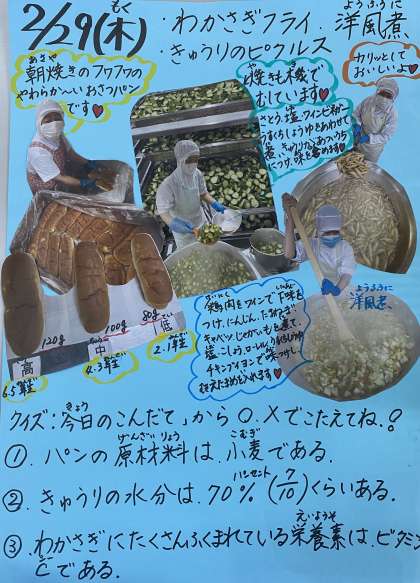 2/29(木)
もく
・わかさぎフライ
・きゅうりのピクルス
ようふうに
洋風煮
あさや
朝焼きのフワフワの
やわらか〜いおさつパン
です♥
カリッとして
おいしいよ♥
焼きもの機で
むしています♥
さとう、塩、ワインビネガー
うすくちしょうゆをあわせて
ようふうに
洋風煮
120g
100g
80g
高
中
低
鶏肉をワインで下味を
つけ、にんじん、たまねぎ
キャベツ、じゃがいもを煮て、
塩、こしょう
チキンブイヨンで味つけし
クイズ:今日のこんだて、から〇、×でこたえてね。!
きょう
げんざいりょう
こむぎ
①.パンの原材料は、小麦である。
パーセント
②.きゅうりの水分は、70%(7/10)くらいある。
えいようそ
③.わかさぎにたくさんふくまれている栄養素は、ビタミン
Cである。